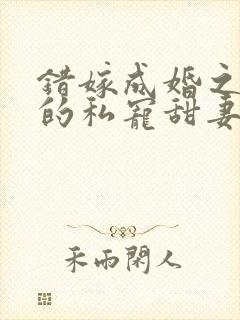 错嫁成婚之
的私宠甜妻
禾雨閑人